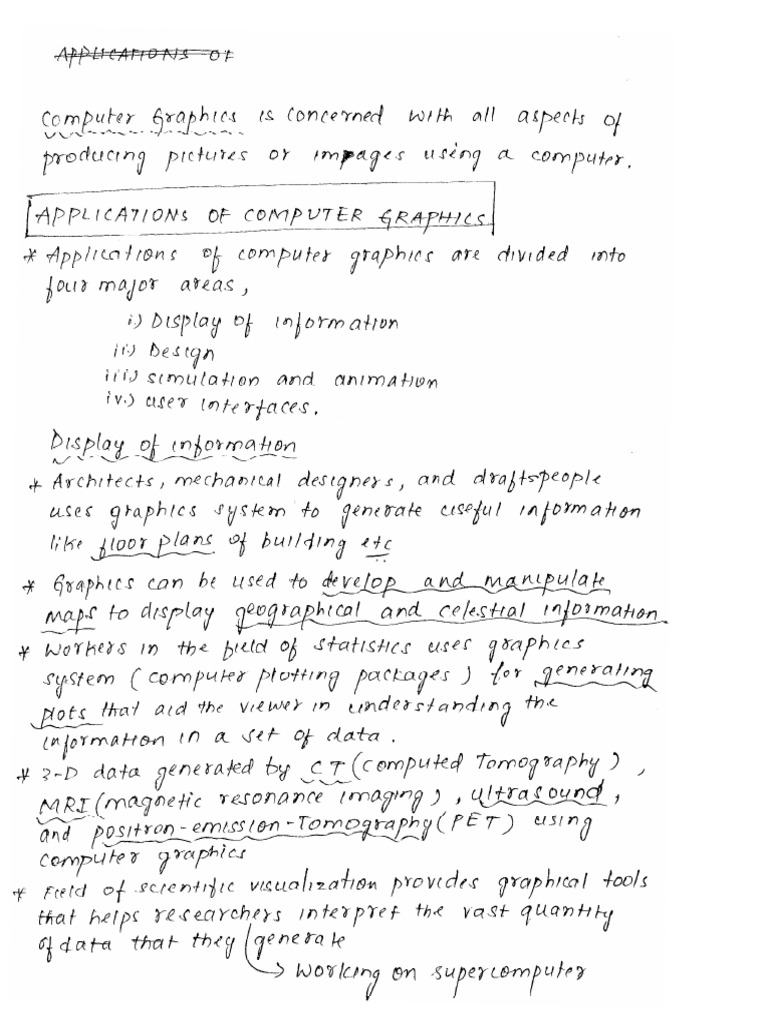 APPLICATIONS OF
Computer Graphics is concerned with all aspects of
producing pictures or impages using a computer.
APPLICATIONS OF COMPUTER GRAPHICS
* Applications of computer graphics are divided into
four major areas,
i) Display of information
ii) Design
iii) simulation and animation
iv.) user interfaces.
Display of information
* Architects, mechanical designers, and draftspeople
uses graphics system to generate useful information
like floor plans of building etc
* Graphics can be used to develop and manipulate
maps to display geographical and celestial information.
* Workers in the field of statistics uses graphics
system (computer plotting packages) for generating
plots that aid the viewer in understanding the
information in a set of data.
* 3-D data generated by CT (computed Tomography),
MRI (magnetic resonance imaging), ultrasound,
and positron-emission-Tomography (PET) using
computer graphics
* Field of scientific visualization provides graphical tools
that helps researchers interpret the vast quantity
of data that they generate
→ working on supercomputer